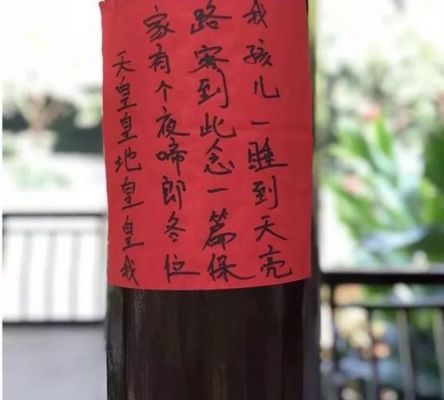 天皇皇地皇皇我
家有个夜啼郎冬位
路客到此念一篇保
我孩儿一睡到天亮